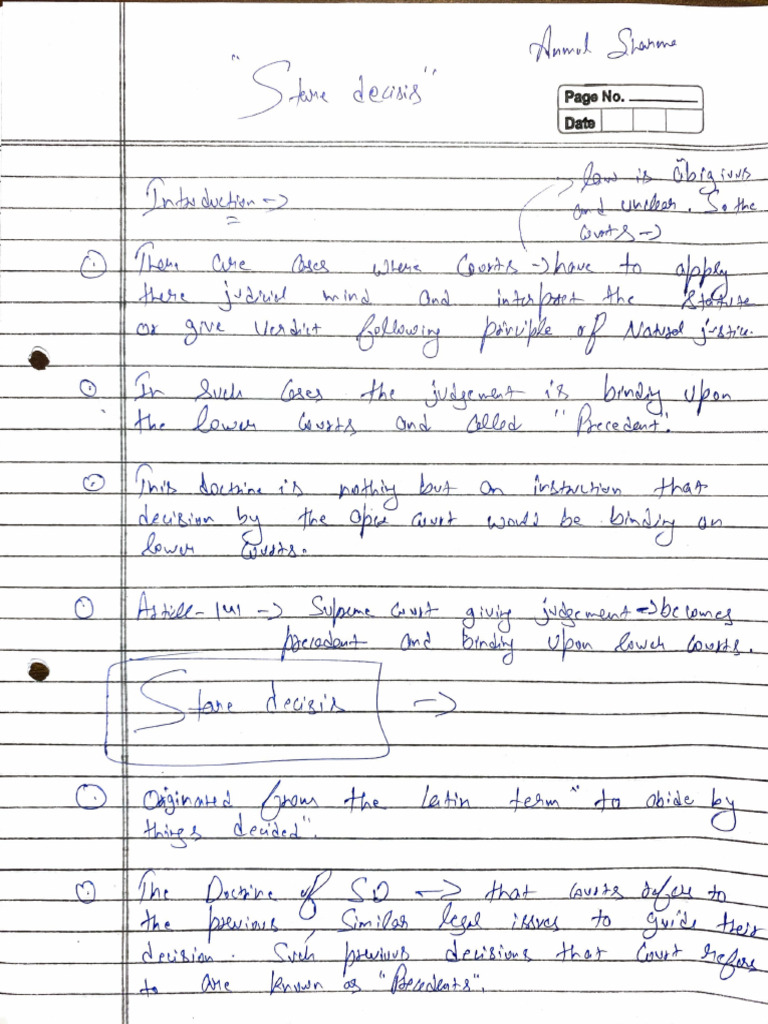 Anmol Sharma
"Stare decisis"
Page No.
Date
Introduction →
law is abigious
and unclear. So the
courts →
There are cases where courts → have to apply
there judicial mind and interpret the statute
or give verdict following principle of Natural justice.
In such cases the judgement is binding upon
the lower courts and called "Precedent".
This doctrine is nothing but an instruction that
decision by the apex court would be binding on
lower courts.
Article - 141 → Supreme court giving judgement → becomes
precedent and binding upon lower courts.
Stare decisis →
Originated from the latin term "to abide by
things decided".
The Doctrine of SD → that courts refers to
the previous, similar legal issues to guide their
decision. Such previous decisions that court refers
to are known as "Precedents".